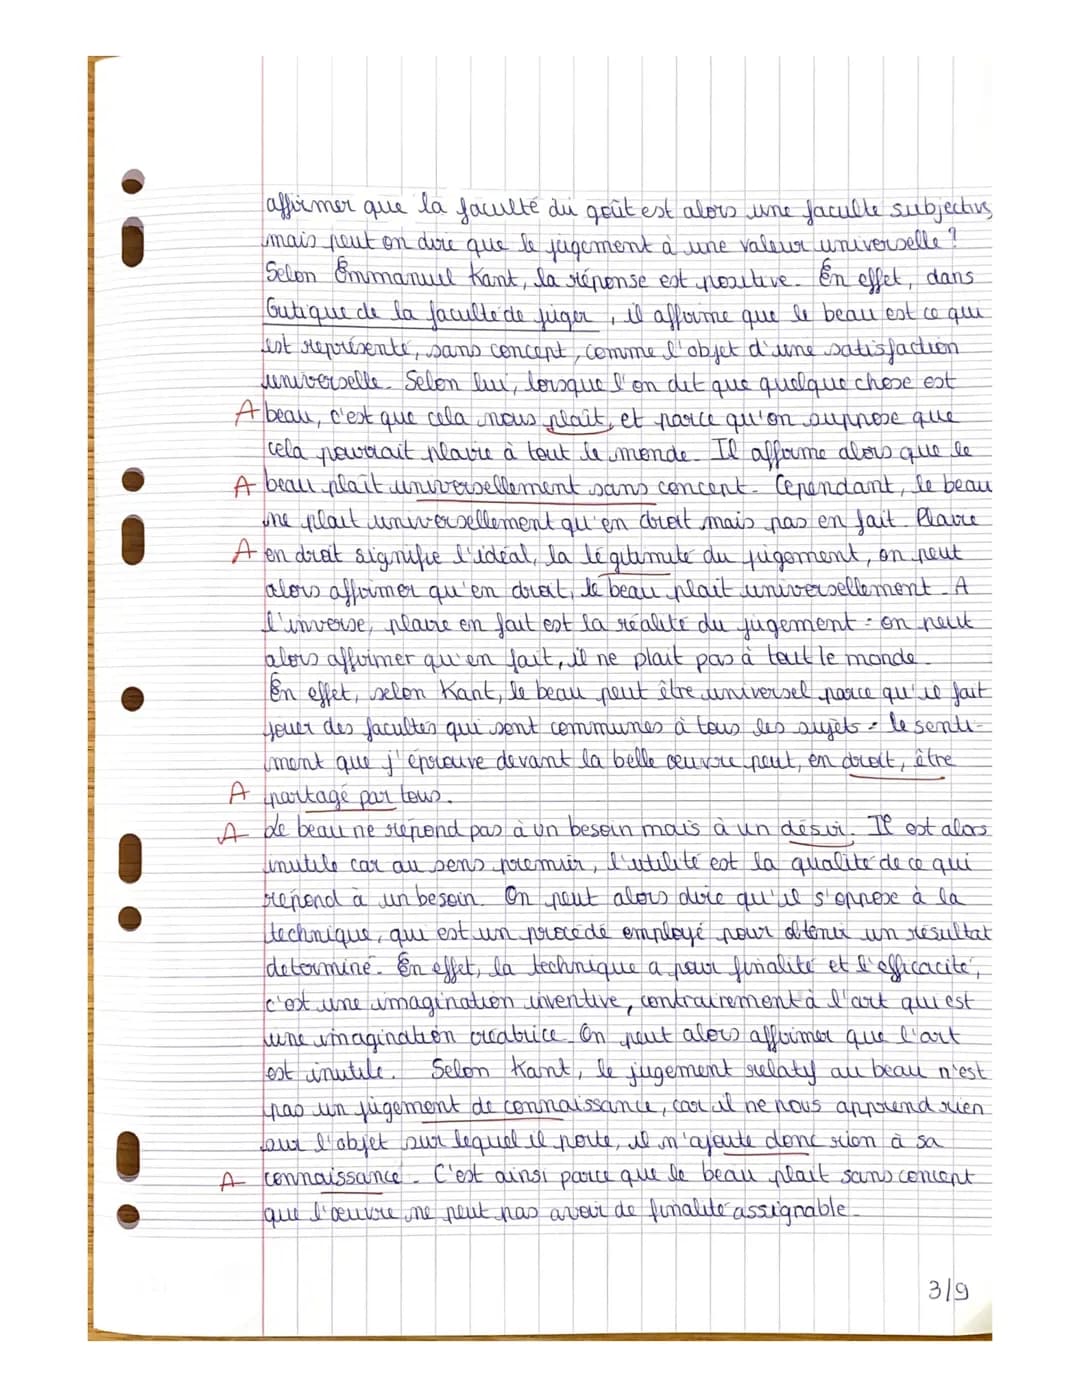 affirmer que la faculté du goût est alors une faculté subjective,
mais peut on dire que le jugement à une valeur universelle ?
Selon Emmanuel Kant, la réponse est positive. En effet, dans
Critique de la faculté de juger, il affirme que le beau est ce qui
est représenté, sans concept, comme l'objet d'une satisfaction
universelle. Selon lui, lorsque l'on dit que quelque chose est
A beau, c'est que cela nous plaît, et parce qu'on suppose que
cela pourrait plaire à tout le monde. Il affirme alors que le
A beau plaît universellement sans concept. Cependant, le beau
ne plait universellement qu'en droit mais pas en fait. Plaire
A en droit signifie l'idéal, la légitimité du jugement, on peut
alors affirmer qu'en droit, le beau plait universellement. A
l'inverse, plaire en fait est la réalité du jugement : on peut
alors affirmer qu'en fait, il ne plait pas à tout le monde.
En effet, selon Kant, le beau peut être universel parce qu'il fait
jouer des facultés qui sont communes à tous les sujets : le senti-
ment que j'éprouve devant la belle œuvre peut, en droit, être
A partagé par tous.
A Le beau ne répond pas à un besoin mais à un désir. Il est alors
inutile car au sens premier, l'utilité est la qualité de ce qui
répond à un besoin. On peut alors dire qu'il s'oppose à la
technique, qui est un procédé employé pour obtenir un résultat
déterminé. En effet, la technique a pour finalité et l'efficacité,
c'est une imagination inventive, contrairement à l'art qui est
une imagination créatrice. On peut alors affirmer que l'art
est inutile. Selon Kant, le jugement relatif au beau n'est
pas un jugement de connaissance, car il ne nous apprend rien
sur l'objet sur lequel il porte, il n'ajoute donc rien à sa
A connaissance. C'est ainsi parce que le beau plait sans concept
que l'œuvre ne peut pas avoir de finalité assignable.
3/9